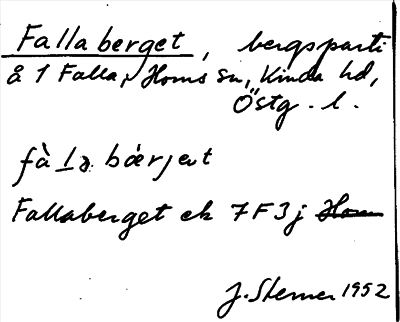 Fallaberget, bergsparti
å 1 Falla, Horns sn, Kinda hd,
Östg. l.
fàl̲ɔbærjət
Fallaberget ek 7F3j
J. Sterner 1952